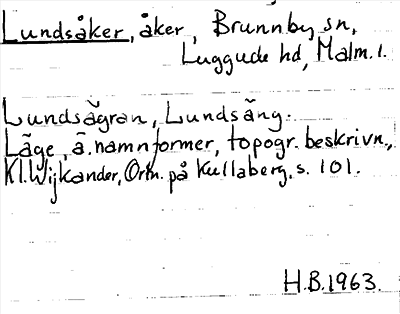 Lundsåker, åker, Brunnby sn,
Luggude hd, Malm. l.
Lundsågran, Lundsäng.
Läge, ä. namnformer, topogr. beskrivn.,
Kl. Wijkander, Ortn. på Kullaberg, s. 101.
H.B. 1963.